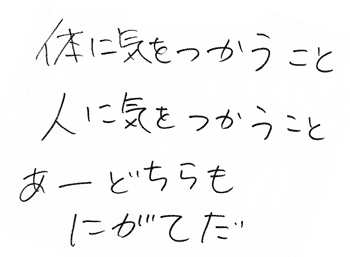 体に気をつかうこと
人に気をつかうこと
あーどちらも
にがてだ